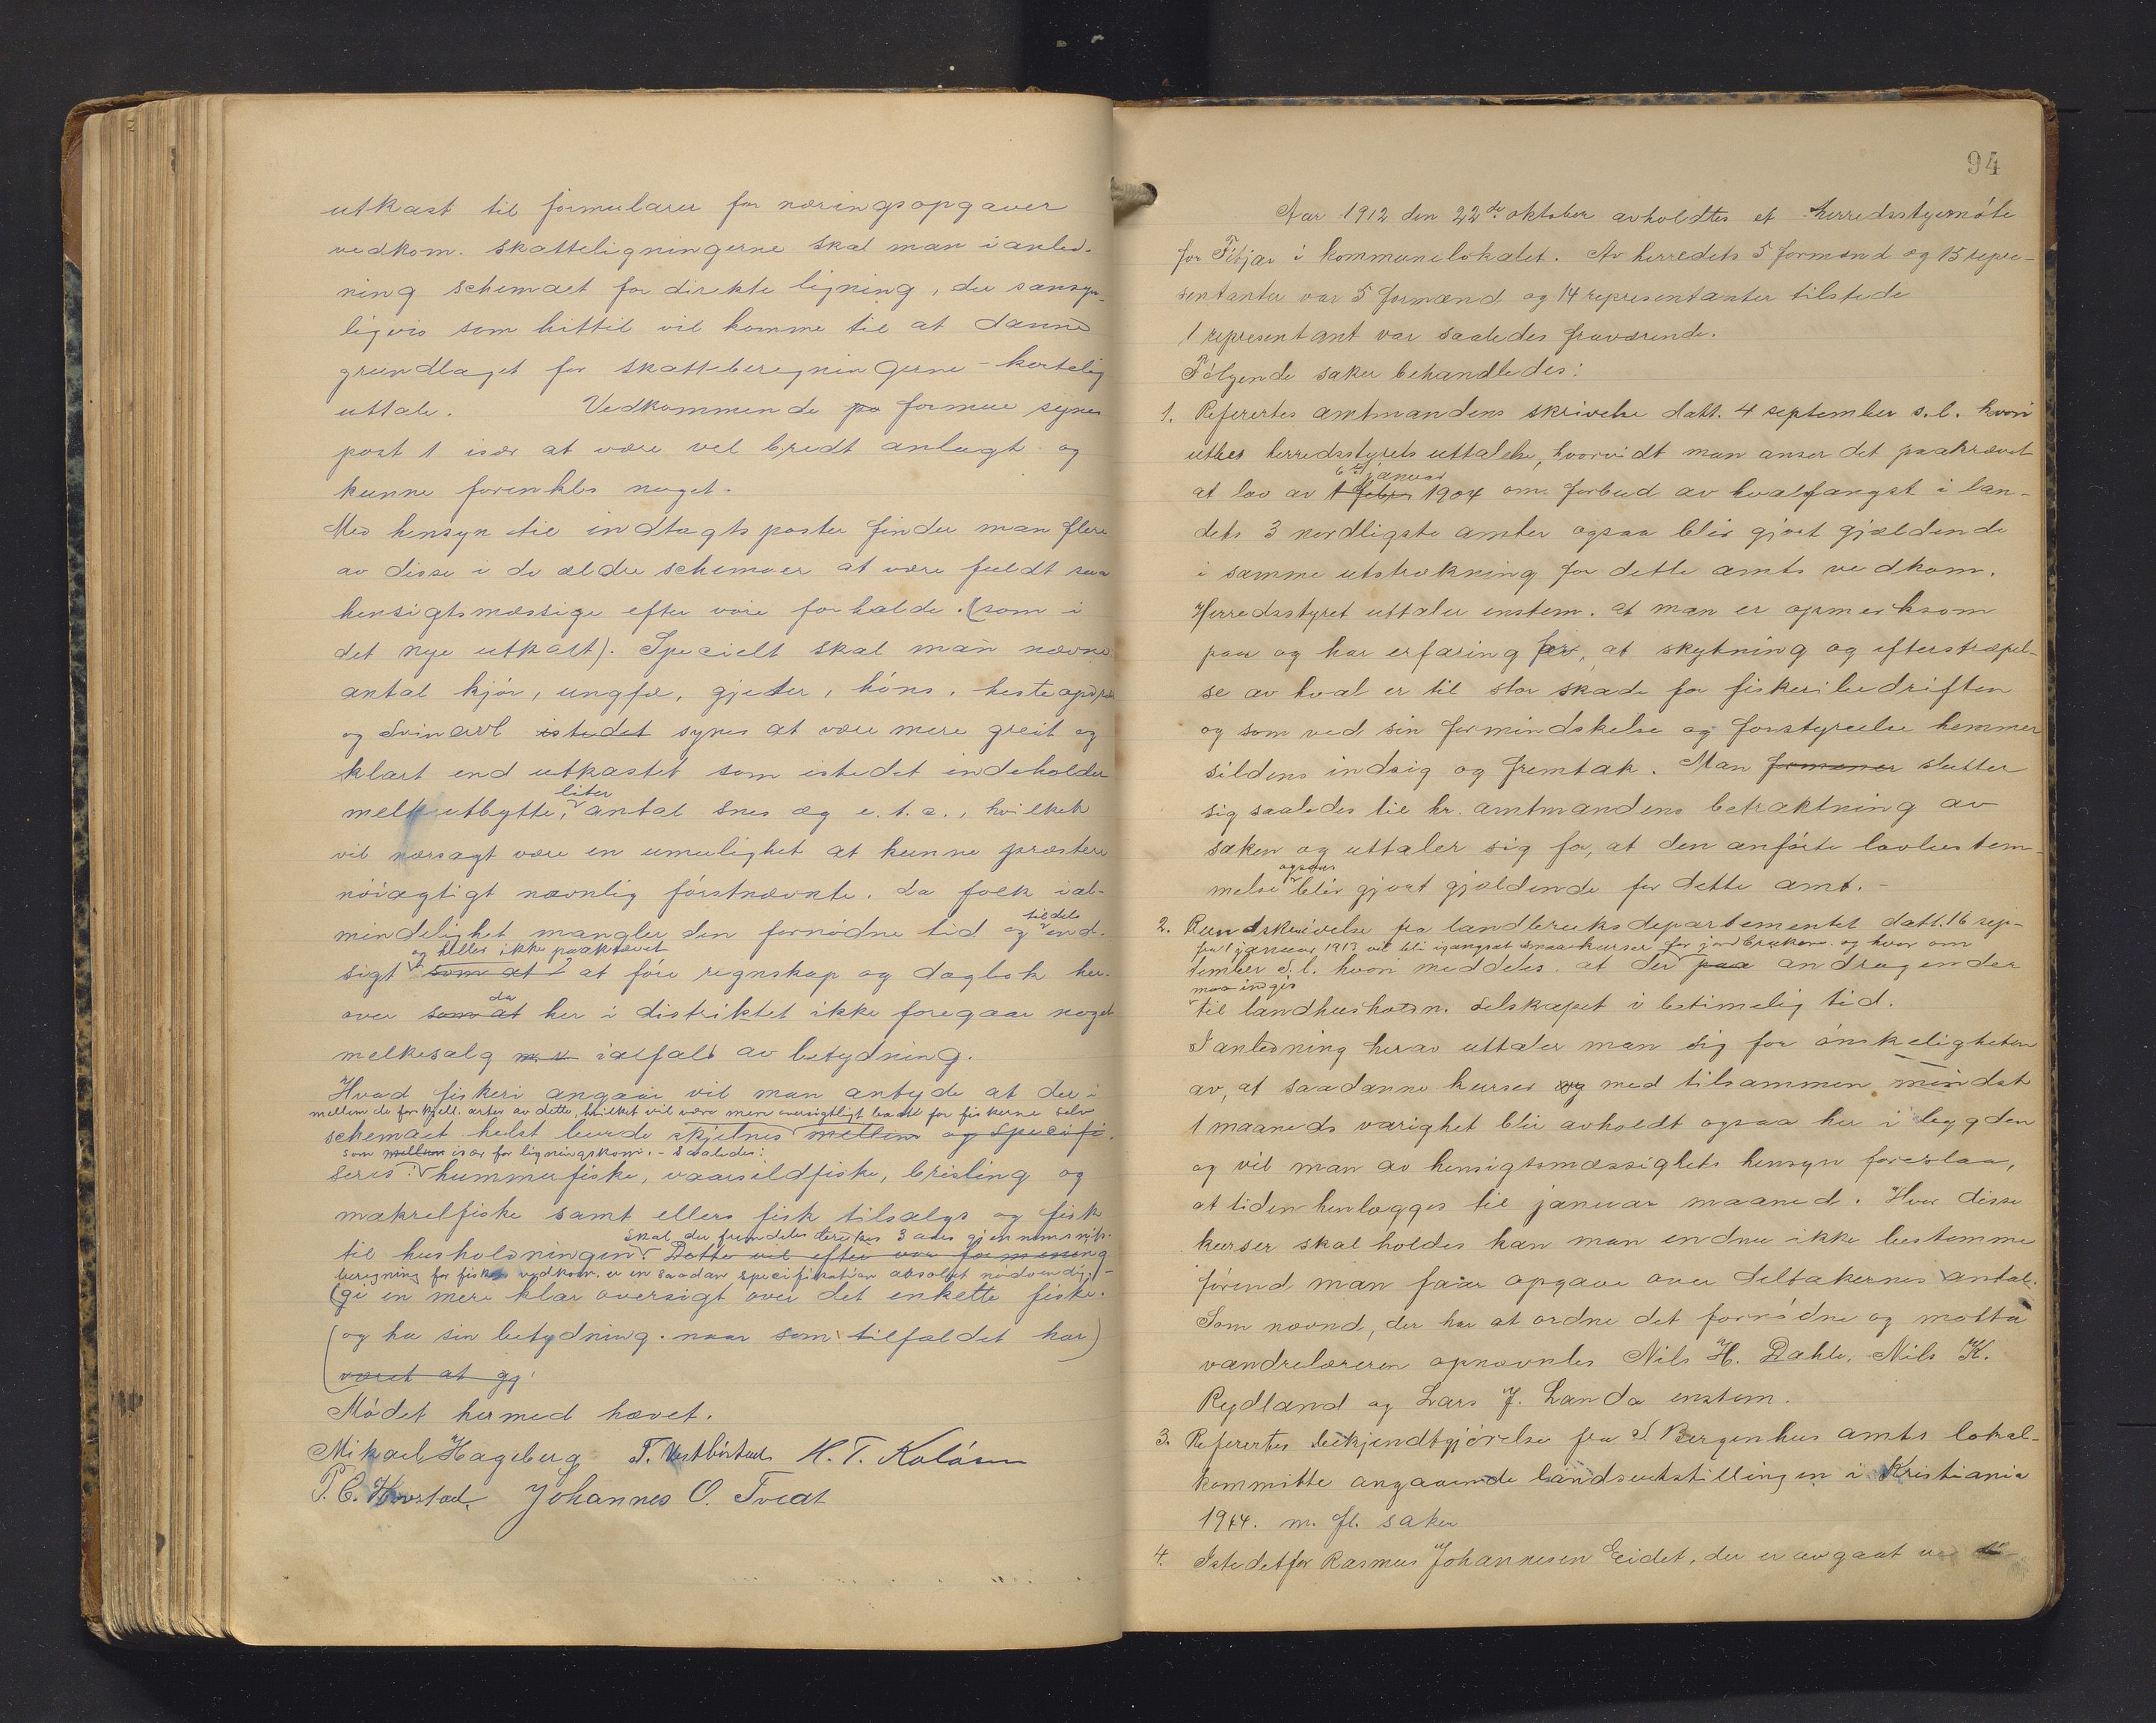 utkast til formularer for næringsopgaver
vedkom. skatteligningerne skal man i anled-
ning schemaet for direkte ligning, der sansyn-
ligvis som hittil vil komme til at danne
grundlaget for skatteberegningerne - kortelig
uttale. Vedkommende pa formue synes
post 1 især at være vel bredt anlagt og
kunne forenkles noget.
Med hensyn til indtægtsposter finder man flere
av disse i de ældre schemaer at være fuldt saa
hensigtsmæssige efter vore forhalde. (som i
det nye utkast). Specielt skal man nævne
antal kjør, ungfæ, gjeter, høns, hesteopdræt
og svinavl istedet synes at være mere greit og
klart end utkastet som istedet indeholder
liter
melkutbytte, antal snes æg e.t.c., hvilket
vil nærsagt være en umulighet at kunne præstere
nøiagtigt navnlig førstnævnte. da folk i al-
tildels
mindelighet mangler den fornødne tid og ind-
og heller ikke paakrævet
sigt som at at føre regnskap og dagbok her-
da
over som at her i distriktet ikke foregaar noget
melkesalg m. v. ialfald av betydning.
Hvad fiskeri angaar vil man antyde at der i
mellem de forskjell. arter av dette, hvilket vil være mere oversigtligt baade for fiskerne selv
schemaet helst burde skjelnes mellem og specifi-
som mellem især for ligningskom. - Saaledes:
seres: hummerfiske, vaarsildfiske, brisling og
makrelfiske samt ellers fisk tilsalgs og fisk
skal der fremdeles brukes 3 aars gjennemsnits-
til husholdningen. Dette vil efter vor formening
beregning for fiskes vedkom. er en saadan specifikation absolut nødvendig -
(gi en mere klar oversigt over det enkelte fiske.
(og ha sin betydning. naar som tilfældet har)
(været at gj
Mødet hermed hævet.
Mikael Hageberg T. Vestbøstad H. T. Koløen
P. C. Hovstad. Johannes O. Tveat
94
Aar 1912 den 22de oktober avholdtes et herredsstyremøte
for Fitjar i kommunelokalet. Av herredets 5 formænd og 15 repre-
sentanter var 5 formænd og 14 representanter tilstede
1 representant var saaledes fraværende.
Følgende saker behandledes:
1. Referertes amtmandens skrivelse datt. 4 september s.l. hvori
utbes herredsstyrets uttalelse, hvorvidt man anser det paakrævet
6te januar
at lov av 1 febr 1904 om forbud av hvalfangst i lan-
dets 3 nordligste amter ogsaa blir gjort gjældende
i samme utstrækning for dette amts vedkom.
Herredsstyret uttaler enstem. at man er opmerksom
paa og har erfaring for, at skytning og efterstræpel-
se av hval er til stor skade for fiskeribedriften
og som ved sin formindskelse og forstyrrelse hemmer
sildens indsig og fremtak. Man formener slutter
sig saaledes til hr. amtmandens betraktning av
saken og uttaler sig for, at den anførte lovbestem-
ogsaa
melse blir gjort gjældende for dette amt. -
2. Rundskrivelse fra landbruksdepartementet datt. 16 sep-
fra 1 januar 1913 vil bli igangsat smaakurser for jordbrukere. og hvor om
tember s.l. hvori meddeles. at der paa andragender
maa indgis
til landhusholdn. selskapet i betimelig tid.
I anledning herav uttaler man sig for ønskeligheten
av, at saadanne kurser og med tilsammen mindst
1 maaneds varighet blir avholdt ogsaa her i bygden
og vil man av hensigtsmæssighets hensyn foreslaa,
at tiden henlægges til januar maaned. Hvor disse
kurser skal holdes kan man endnu ikke bestemme
førend man faar opgave over deltakernes antal.
Som nævnd, der har at ordne det fornødne og motta
vandrelæreren opnævntes Nils H. Dahle, Nils K.
Rydland og Lars J. Landa enstem.
3. Referertes bekjendtgjørelse fra S. Bergenhus amts lokal-
kommitte angaaende landsutstillingen i Kristiania
1914. m. fl. saker
4. Istedetfor Rasmus Johannesen Eidet, der er avgaat ve